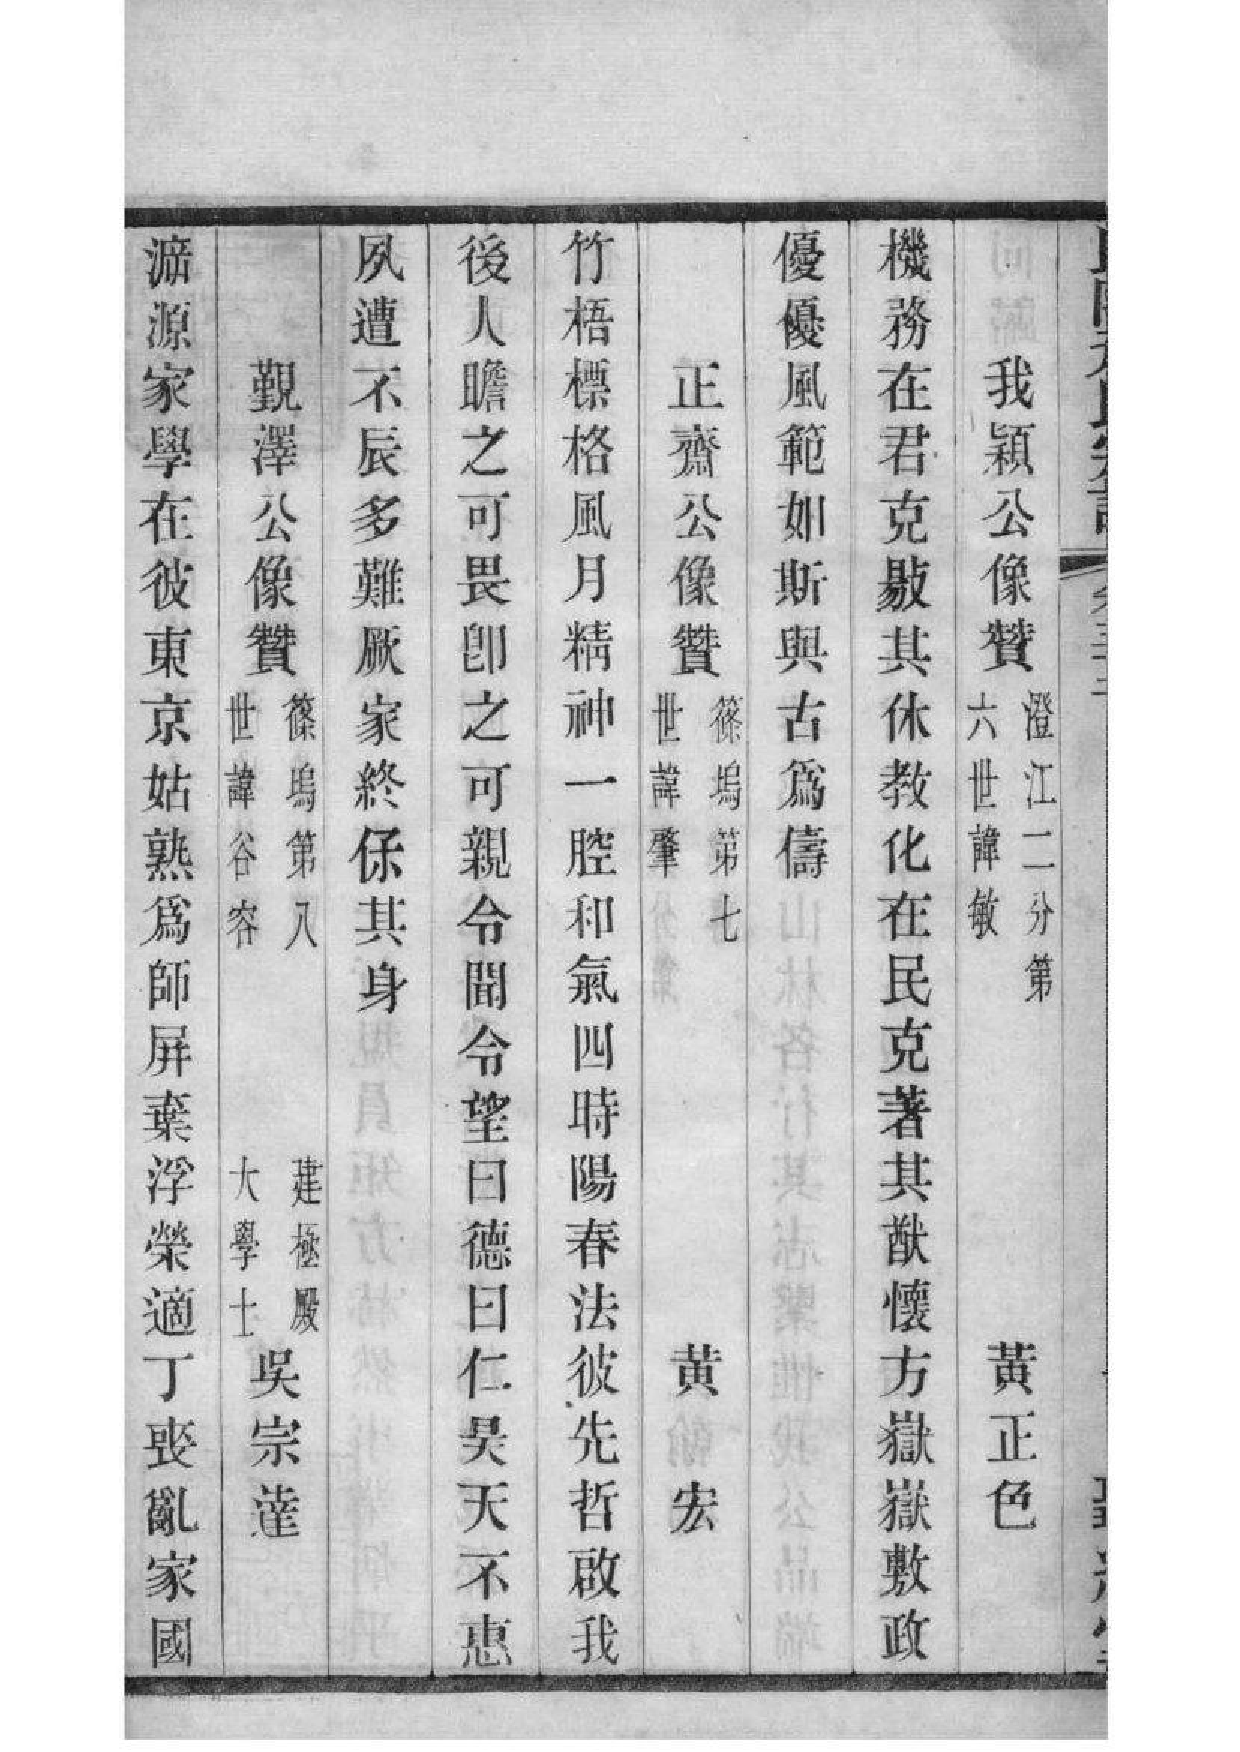 我穎公像贊 澄江二分第六世諱敏 黃正色
機務在君克敭其休教化在民克著其猷懷方嶽嶽敷政
優優風範如斯與古爲儔
正齋公像贊 篠塢第七世諱肇 黃宏
竹梧標格風月精神一腔和氣四時陽春法彼先哲啟我
後人瞻之可畏卽之可親令聞令望曰德曰仁昊天不惠
夙遭不辰多難厥家終保其身
覲澤公像贊 篠塢第八世諱谷容 建極殿大學士 吳宗達
源家學在彼東京姑熟爲師屏棄浮榮適丁喪亂家國